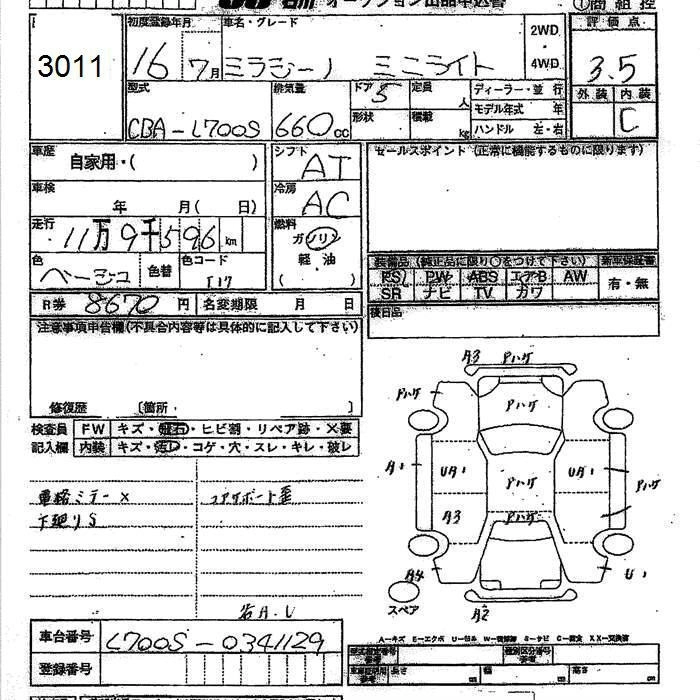 石川 オークション出品申込書
3011
初度登録年月 車名・グレード 2WD・4WD ①商組控 評価点
16 7月 ミラジーノ ミニライト 3.5
型式 排気量 ドア 5 定員 人 ディーラー・並行 外装 内装
CBA-L700S 660cc 形状 積載 kg モデル年式 年 C
ハンドル 左・右
車歴 自家用・( ) シフト AT セールスポイント(正常に機能するものに限ります)
車検 年 月( 日) 冷房 AC
走行 11万9千596km 燃料 ガソリン
色 ベージュ 色替 色コード T17 軽油 ( )
装備品(純正品に限り○をつけて下さい) 新車保証書
PS PW ABS エアB AW 有・無
SR ナビ TV カワ
R券 8670円 名変期限 月 日
後日品
注意事項申告欄(不具合内容等は具体的に記入して下さい)
修復歴 〔箇所・ 〕
検査員 FW キズ・飛石・ヒビ割・リペア跡・×要
記入欄 内装 キズ・汚レ・コゲ・穴・スレ・キレ・破レ
電格ミラー×
下廻りS
コアサポート歪
岩A.U
A3 Pハゲ
Pハゲ Pハゲ
A1 UA1 Pハゲ UA1 Pハゲ
A3 Pハゲ
A4 U1
スペア A2
A-キズ E-エクボ U-凹ミ W-補修跡 S-サビ C-腐食 XX-交換済
車台番号 L700S-0341129
登録番号
型式指定番号 類別区分番号
長さ cm 幅 cm 高さ cm